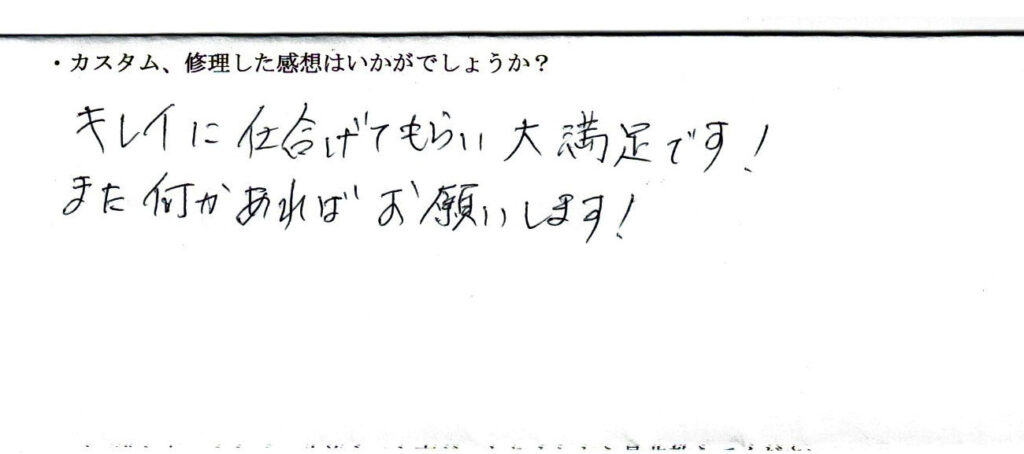 ・カスタム、修理した感想はいかがでしょうか？
キレイに仕合げてもらい大満足です！
また何かあればお願いします！